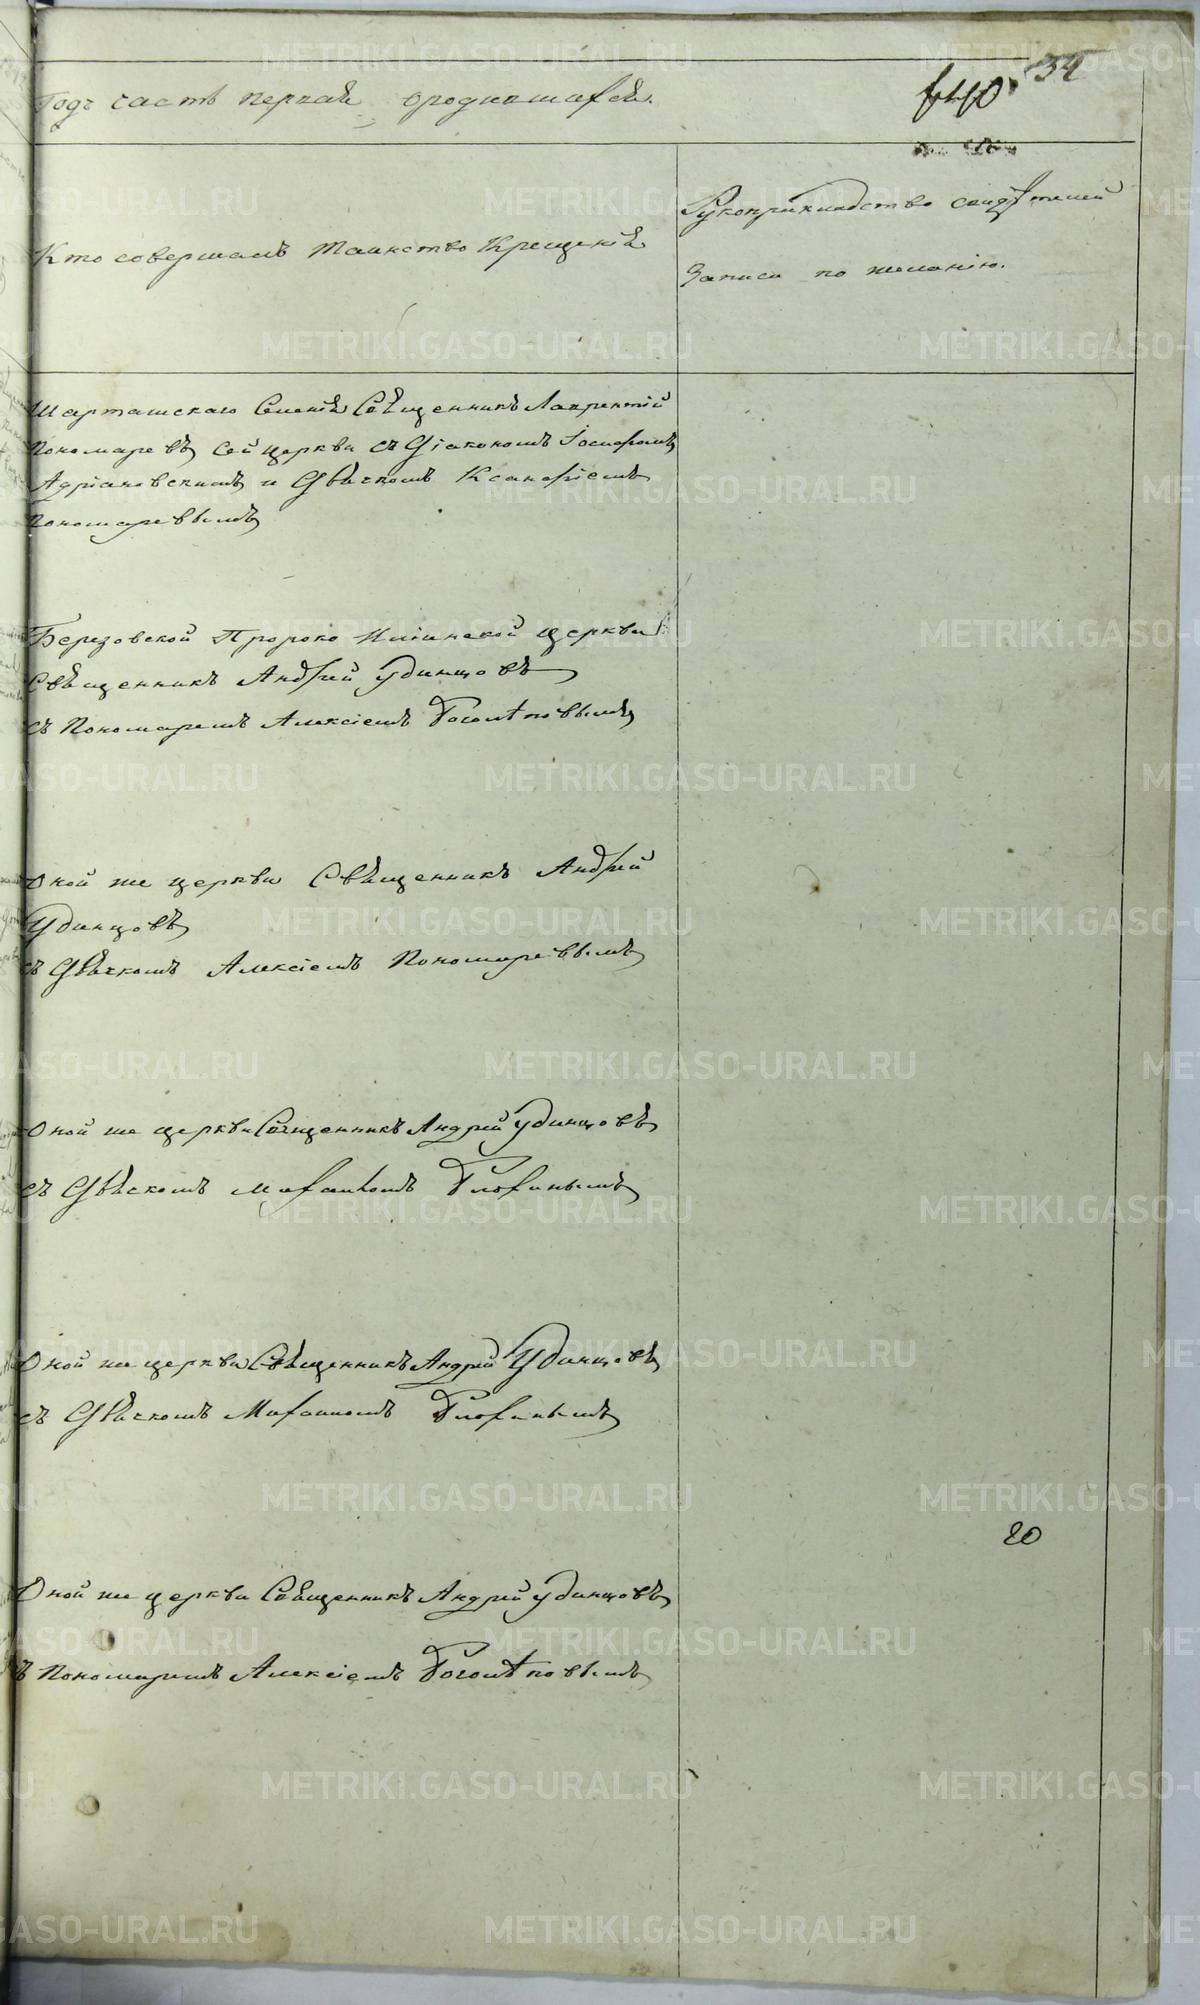 34
Годъ часть первая ородившихся.
640
Кто совершалъ таинство Крещенія
Рукоприкладство свидѣтелей
записи по желанію.
Шарташскаго Селенія Священникъ Лаврентій
Пономаревъ сей церкви съ Діакономъ Іосифомъ
Адріановскимъ и Дьячкомъ Ксанофіемъ
Пономаревымъ
Березовской Пророко Илiинской церкви
Священникъ Андрей Удинцовъ
съ Пономаремъ Алексіемъ Боголѣповымъ
Оной же церкви Священникъ Андрей
Удинцовъ
съ Дьячкомъ Алексіемъ Пономаревымъ
Оной же церкви Священникъ Андрей Удинцовъ
съ Дьячкомъ Михаиломъ
Оной же церкви Священникъ Андрей Удинцовъ
съ Дьячкомъ Михаиломъ
20
Оной же церкви Священникъ Андрей Удинцовъ
съ Пономаремъ Алексіемъ Боголѣповымъ
METRIKI.GASO-URAL.RU